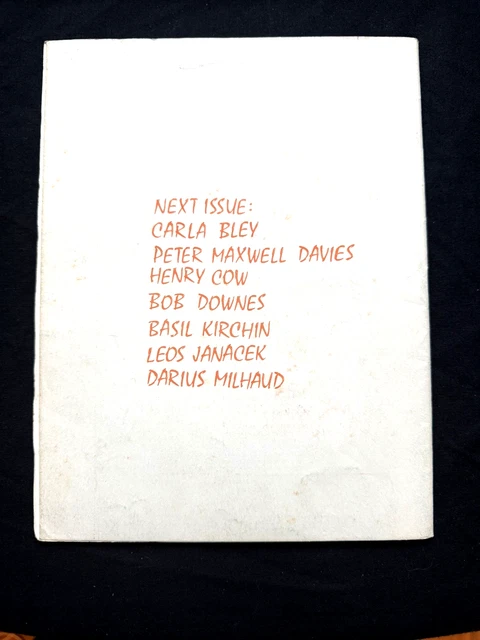 NEXT ISSUE:
CARLA BLEY
PETER MAXWELL DAVIES
HENRY COW
BOB DOWNES
BASIL KIRCHIN
LEOS JANACEK
DARIUS MILHAUD